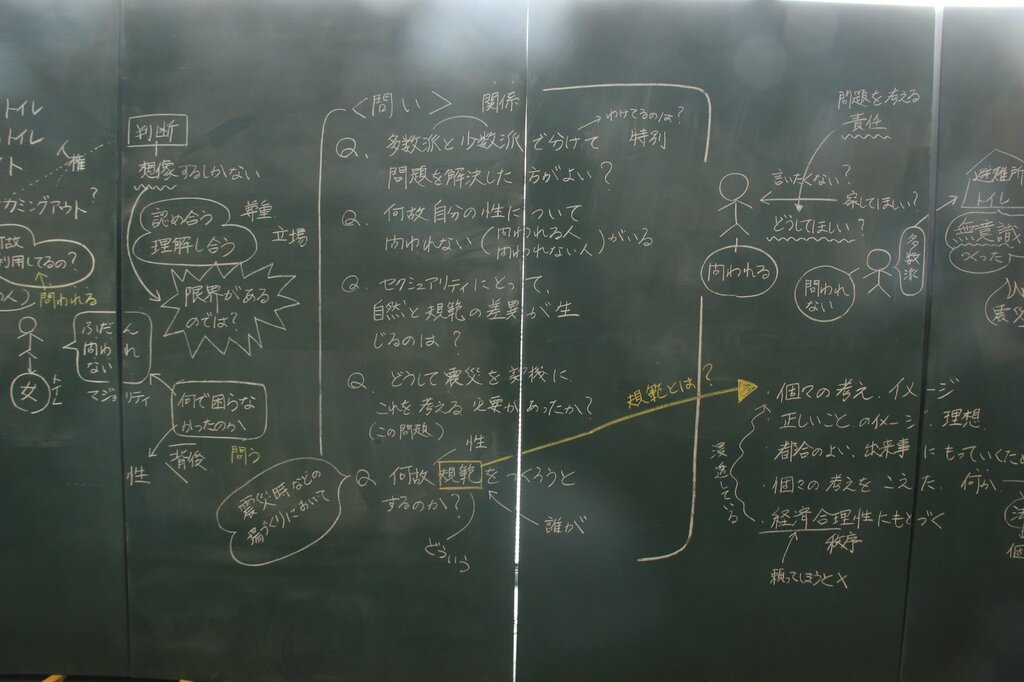 トイレ
トイレ
人権
カミングアウト?
利用してるの?
問われる
ふだん
問われ
ない
マジョリティ
女
判断
想像するしかない
認め合う
理解し合う
尊重
立場
限界がある
のでは?
何で困らな
かったのか
性
背後
問う
震災時などの
場づくりにおいて
<問い> 関係
Q. 多数派と少数派で分けて
問題を解決した方がよい?
わけてるのは?
特別
Q. 何故自分の性について
問われない(問われる人
問われない人)がいる
Q. セクシュアリティにとって、
自然と規範の差異が生
じるのは?
Q. どうして震災を契機に
これを考える必要があったか?
(この問題)
性
Q 何故規範をつくろうと
するのか?
どういう
誰が
規範とは?
問題を考える
責任
言いたくない?
察してほしい?
どうしてほしい?
問われる
問われ
ない
多数派
避難所
トイレ
無意識
つくった
・個々の考え、イメージ
・正しいことのイメージ 理想
・都合のよい出来事にもっていくため
・個々の考えをこえた 何か
・経済合理性にもとづく
秩序
浸透している
頼ってほうと×